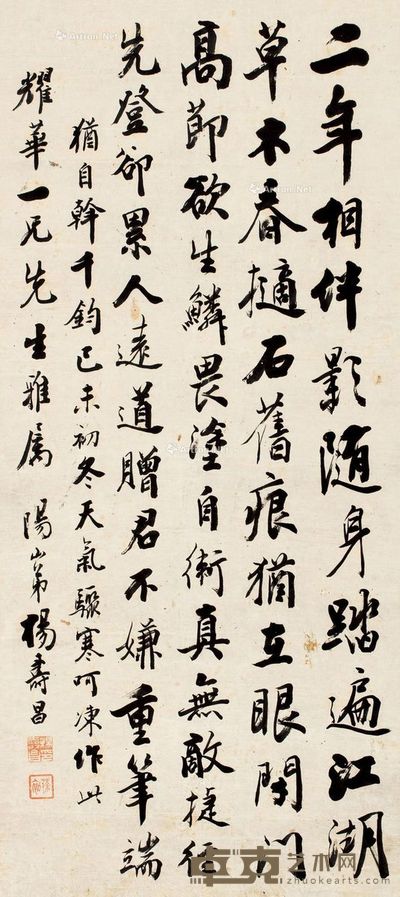 二年相伴影隨身踏遍江湖
草木春擿石舊痕猶在眼閉門
高節欲生鱗畏塗自衛真無敵捷徑
先登卻累人遠道贈君不嫌重筆端
猶自斡千鈞己未初冬天氣驟寒呵凍作此
耀華一兄先生雅屬 陽山弟楊壽昌
卓克艺术网
www.zhuokearts.com
Artron.Net